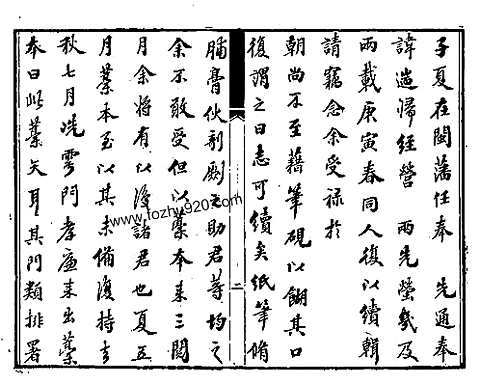 子夏在閩藩任奉 先通奉
諱遄歸經營 兩先塋幾及
兩載庚寅春同人復以續輯
請竊念余受祿於
朝尚不至藉筆硯以餬其口
復謂之曰志可續矣紙筆脩
二
脯膏伙剞劂之助君等均之
余不敢受但以稾本来三閱
月余將有以復諸君也夏五
月稾本至以其未備復持去
秋七月冼雩門孝廉来出稾
本曰此稾矣耳其門類排署
www.fozhy920.com